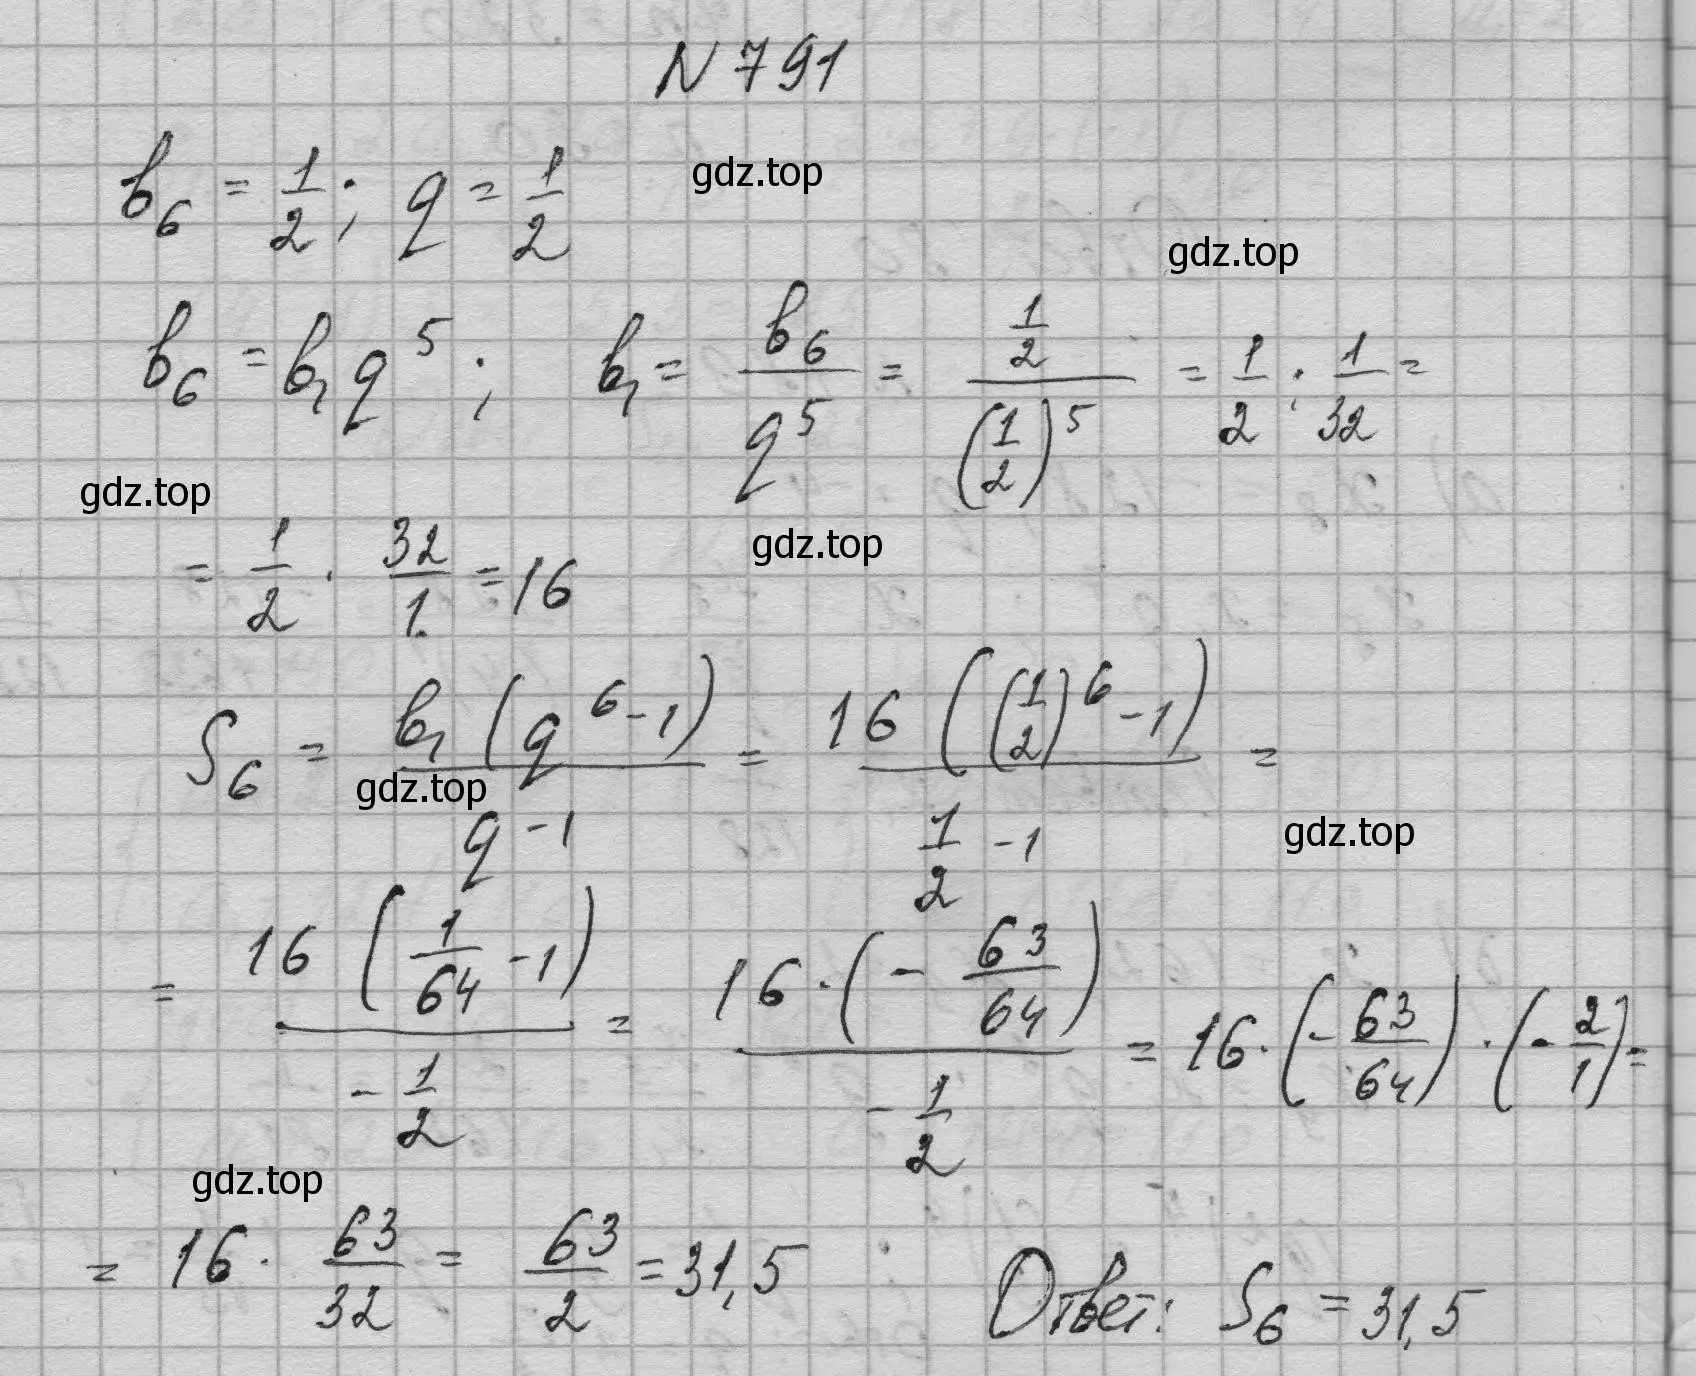 N 791
gdz.top
b₆ = 1/2; q = 1/2
gdz.top
b₆ = b₁q⁵; b₁ = b₆/q⁵ = (1/2)/(1/2)⁵ = 1/2 : 1/32 =
gdz.top
gdz.top
= 1/2 · 32/1 = 16
S₆ = b₁(q⁶-1)/(q-1) = 16((1/2)⁶-1)/(1/2 -1) =
gdz.top
gdz.top
= 16(1/64 -1)/(-1/2) = 16·(-63/64)/(-1/2) = 16·(-63/64)·(-2/1) =
gdz.top
= 16· 63/32 = 63/2 = 31,5 Ответ: S₆ = 31,5